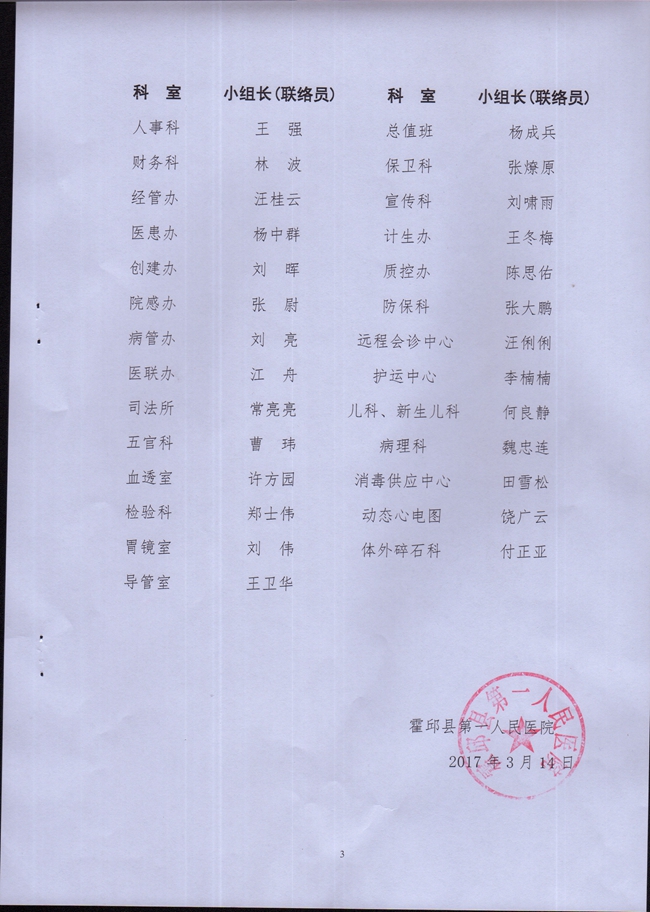 科 室 小组长(联络员) 科 室 小组长(联络员)
人事科 王 强 总值班 杨成兵
财务科 林 波 保卫科 张燎原
经管办 汪桂云 宣传科 刘啸雨
医患办 杨中群 计生办 王冬梅
创建办 刘 晖 质控办 陈思佑
院感办 张 尉 防保科 张大鹏
病管办 刘 亮 远程会诊中心 汪俐俐
医联办 江 舟 护运中心 李楠楠
司法所 常亮亮 儿科、新生儿科 何良静
五官科 曹 玮 病理科 魏忠连
血透室 许方园 消毒供应中心 田雪松
检验科 郑士伟 动态心电图 饶广云
胃镜室 刘 伟 体外碎石科 付正亚
导管室 王卫华
霍邱县第一人民医院
霍邱县第一人民医院
2017 年 3 月 14 日
3